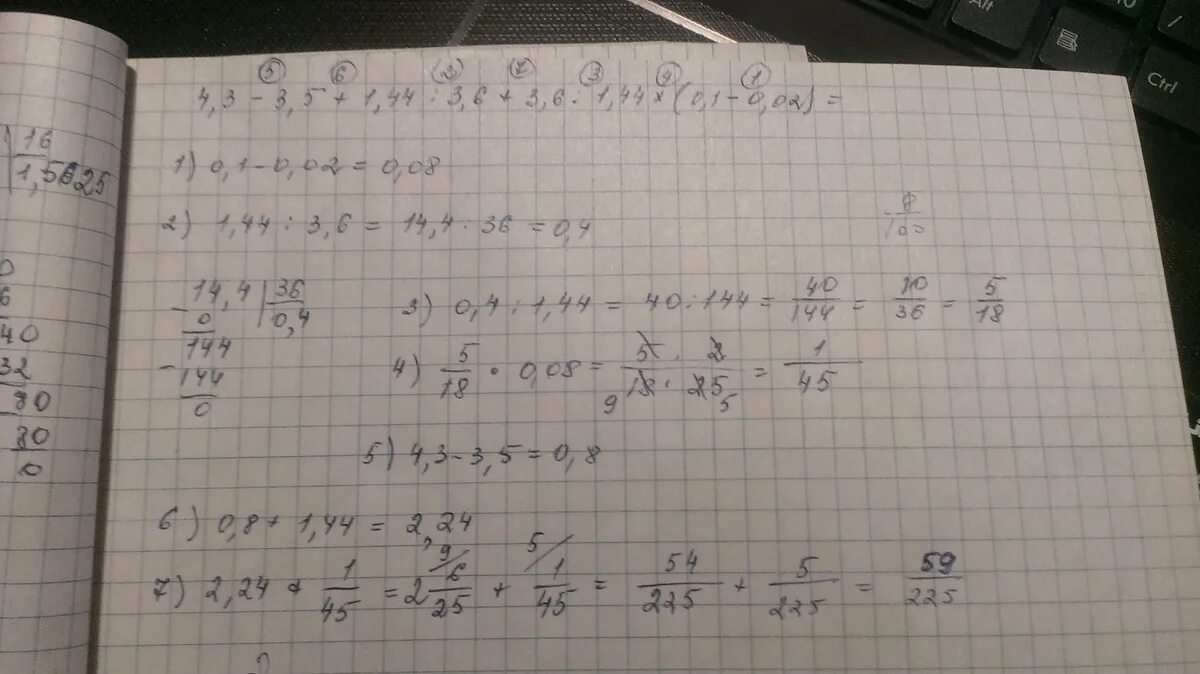 5 6 2 7 3 4 1
4,3 - 3,5 + 1,44 : 3,6 + 3,6 : 1,44 * (0,1 - 0,02) =
1) 0,1 - 0,02 = 0,08
2) 1,44 : 3,6 = 14,4 : 36 = 0,4
8/100
14,4 | 36
0 0,4
144
144
0
3) 0,4 : 1,44 = 40 : 144 = 40/144 = 10/36 = 5/18
4) 5/18 · 0,08 = 5 · 2 / 18 · 25 = 1/45
9 5
5) 4,3 - 3,5 = 0,8
6) 0,8 + 1,44 = 2,24
7) 2,24 + 1/45 = 2 6/25 + 1/45 = 54/225 + 5/225 = 59/225
9 5
16
1,5625
0
6
40
32
80
80
0
Alt
Ctrl
/